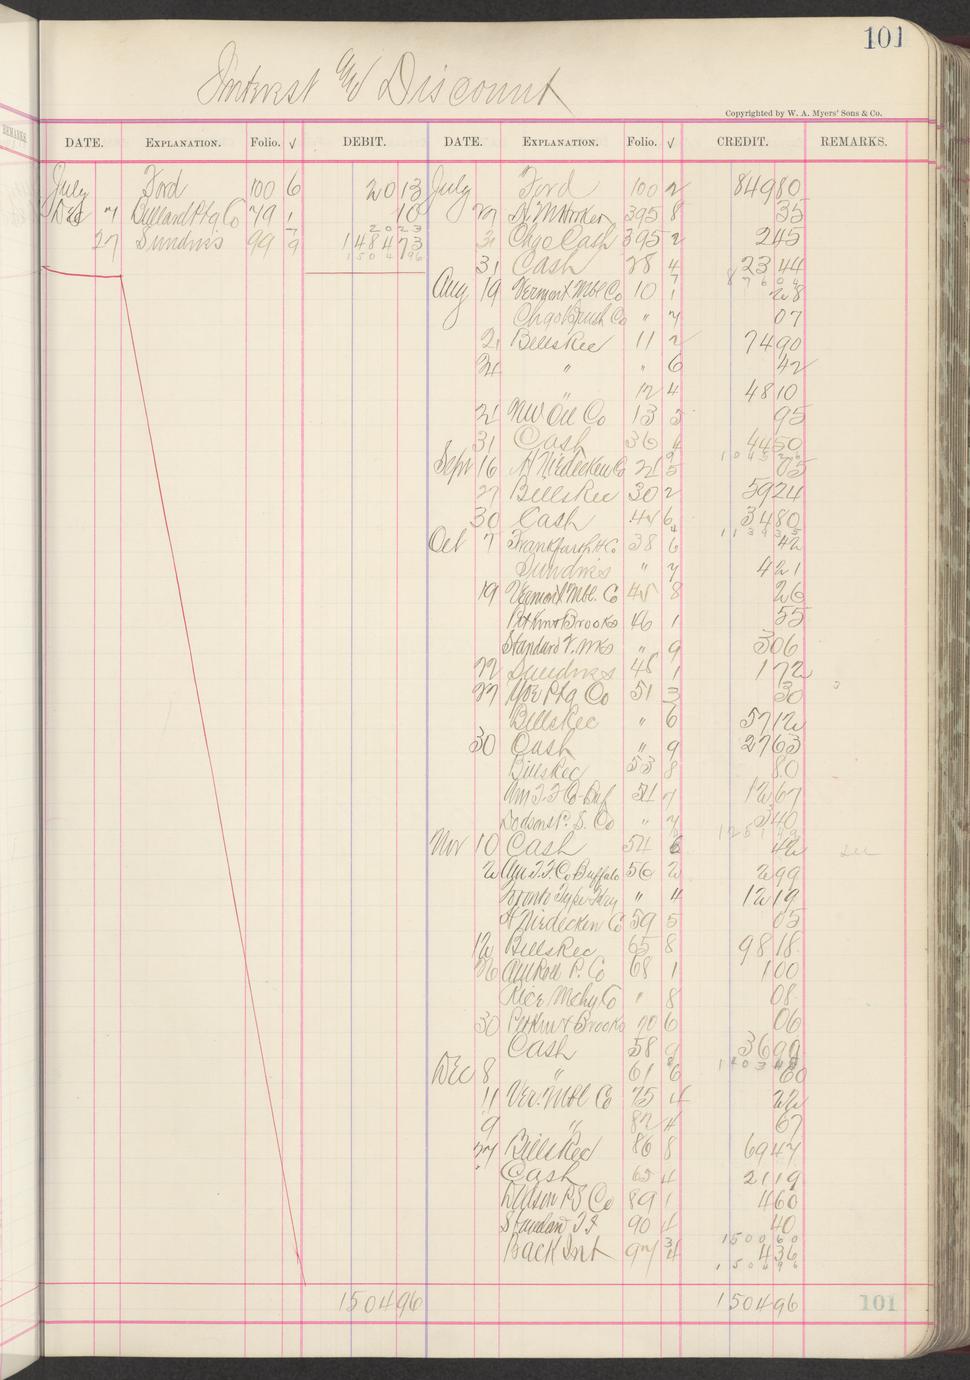 101
Interest and Discount
Copyrighted by W. A. Myers' Sons & Co.
DATE. EXPLANATION. Folio. √ DEBIT. DATE. EXPLANATION. Folio. √ CREDIT. REMARKS.
July Ford 100 6 20 13
Dec 7 Bullard Ptg Co 79 1 10
20 23
27 Sundries 99 7/9 1484 73
1504 96
July Ford 100 2 849 80
395 8 35
31 Chgo Cash 395 2 2 45
31 Cash 28 4 23 44
876 04
Aug 19 Vermont Mbl Co 10 1 28
Chgo Brush Co " 7 07
21 Bills Rec 11 2 74 90
" " 6 42
" 12 4 48 10
21 NW Oil Co 13 5 95
31 Cash 36 4 44 50
Sept 16 A Niedecken Co 21 5 05
27 Bills Rec 30 2 59 24
30 Cash 42 6 34 80
Oct 7 Frankfurth H Co 38 6 42
Sundries " 7 4 21
19 Vermont Mbl. Co 42 8 26
Pitkin & Brooks 46 1 55
Standard F. Wks " 9 3 06
22 Sundries 48 1 1 72
27 Ptg Co 51 3 30
Bills Rec " 6 57 12
30 Cash " 9 27 63
Bills Rec 53 8 80
Am T. F Co-Buf 54 7 12 67
Dodson P. S. Co " 7 3 40
Nov 10 Cash 54 6 42
2 Am T. F. Co Buffalo 56 2 2 99
Toronto Type Fdry " 4 12 19
A Niedecken Co 59 5 05
12 Bills Rec 65 8 98 18
26 Am Roll P. Co 68 1 1 00
Rice Mchy Co " 8 08
30 Pitkin & Brooks 70 6 06
Cash 58 9 36 99
Dec 8 " 61 6 60
11 Ver. Mbl Co 75 4 22
9 " 82 4 67
27 Bills Rec 86 8 69 47
" Cash 65 4 21 19
P S Co 89 1 4 60
Standard T F 90 4 40
1500 60
Back Int 97 3/4 4 36
1504 96
1504 96 1504 96
101